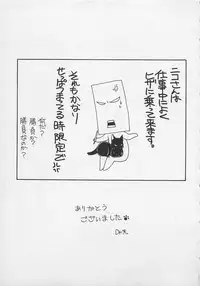 ニコさんは
仕事中によく
ヒザに乗って来ます。
それもかなり
せっぱつまってる時限定で!!
何だ?
勝負か?
勝負なのか?
ありがとう
ございました